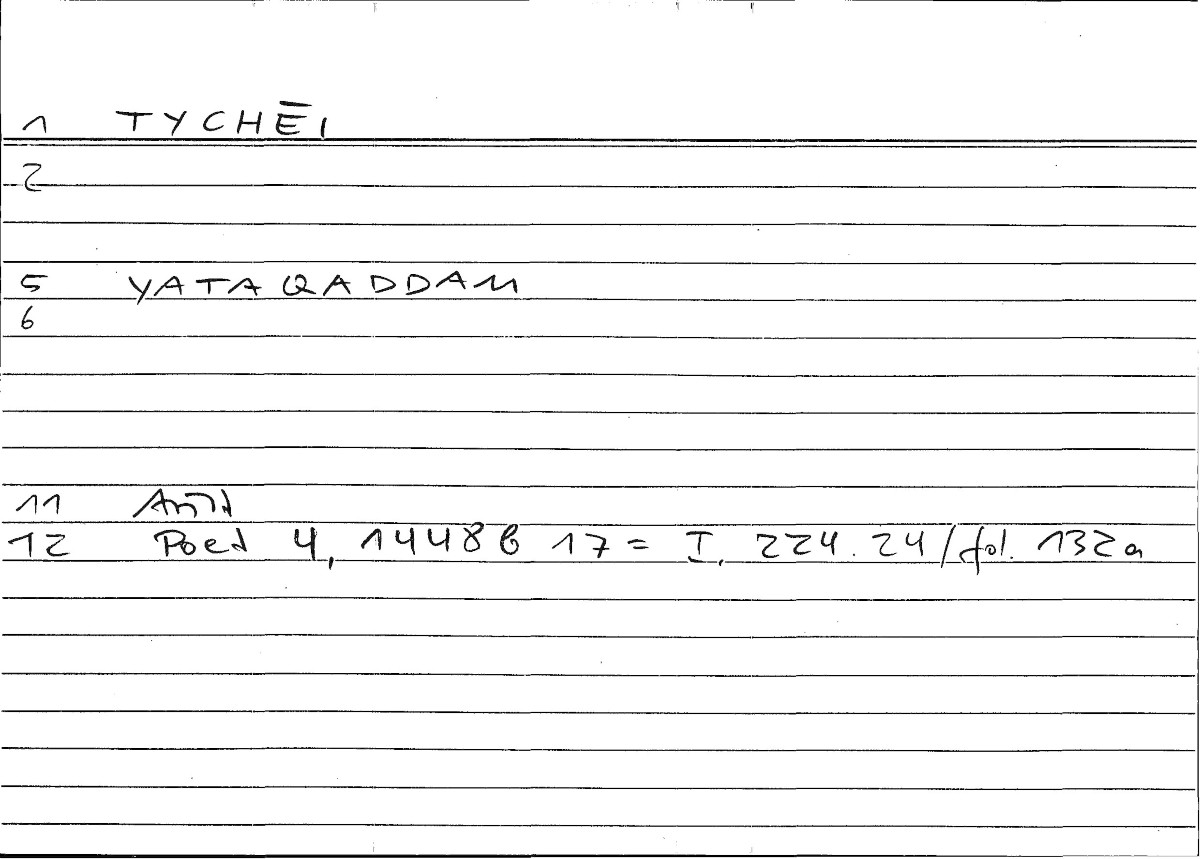 1 TYCHĒI
2
5 YATAQADDAM
6
11 Arist
12 Poet 4, 1448b 17 = I, 224.24/fol. 132a